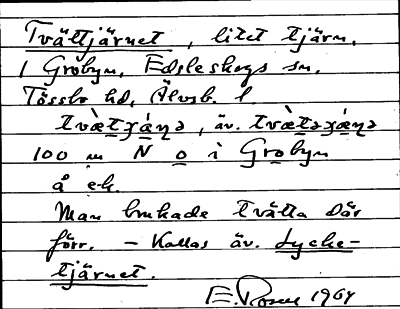 Tvättjärnet, litet tjärn,
i Grobyn, Edsleskogs sn.
Tössbo hd, Älvsb. l
tvæ̀tɟǽŋə, äv. tvæ̀təɟǽŋə
100 m N o i Grobyn
å ek.
Man brukade tvätta där
förr. – Kallas äv. Lycke-
tjärnet.
E. 1964